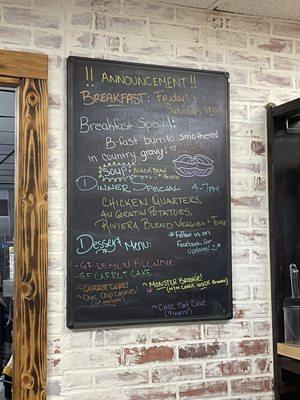 !! ANNOUNCEMENT!!
BREAKFAST: Fridays +
Saturdays ONLY!
Breakfast Special:
B-fast burrito smothered
in country gravy!
SOUP: Black Bean
+ Potato
DINNER SPECIAL 4-7PM
CHICKEN QUARTERS,
AU GRATIN POTATOES,
RIVIERA BLEND VEGGIES +
*Follow us on
Facebook for
Updates!
Dessert Menu:
-GF LEMON BLONDIE
-GF CARROT CAKE
~CARROT CAKE!
~Choc Chip Cookies!
~MONSTER BROOKIE!
~CHOC TART CAKE